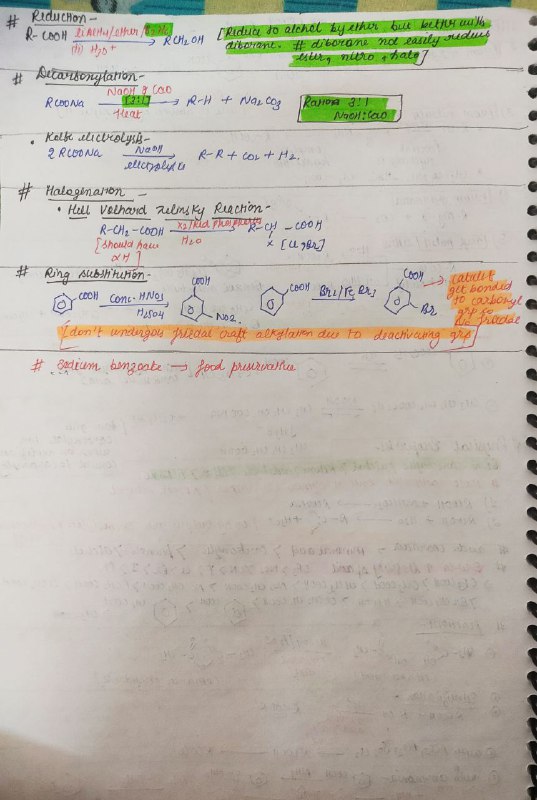 # Reduction -
R-COOH (i) LiAlH4/ether/B2H6 → (ii) H3O+ RCH2OH [Reduce to alcohol by ether, but better with
diborane. # diborane not easily reduces
ester, nitro, halo]
# Decarboxylation -
RCOONa NaOH & CaO [3:1] Heat → R-H + Na2CO3 Ration 3:1
NaOH:CaO
• Kolbe electrolysis -
2 RCOONa NaOH → electrolysis R-R + CO2 + H2.
# Halogenation -
• Hell Volhard Zelinsky Reaction -
R-CH2-COOH X2/Red phosphorus → H2O R-CH-COOH
[should have αH] X [Cl, Br]
# Ring substitution -
COOH Conc. HNO3 → H2SO4 COOH NO2. COOH Br2/Fe Br3 → COOH Br → catalit
get bonded
to carbonyl
grp so
no friedal
[don't undergoes friedal craft alkylation due to deactivating grp]
# Sodium benzoate → food preservative